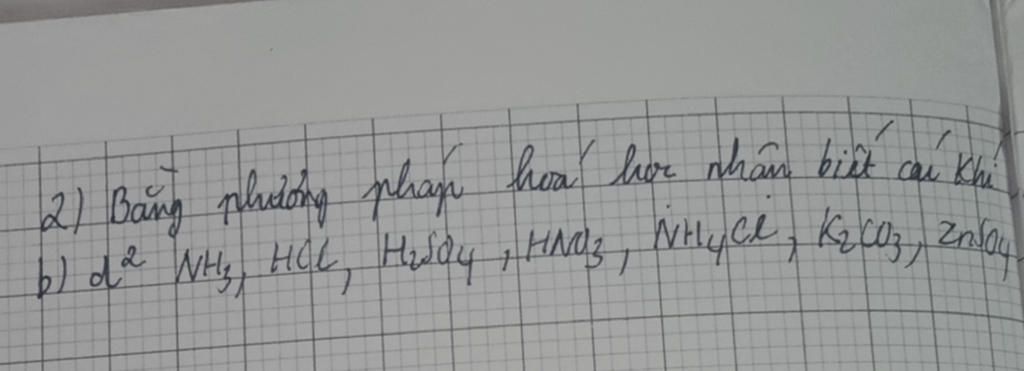 2) Bằng phương pháp hoá học nhân biết các khí
b) d² NH₃, HCl, H₂SO₄, HNO₃, NH₄Cl, K₂CO₃, ZnSO₄